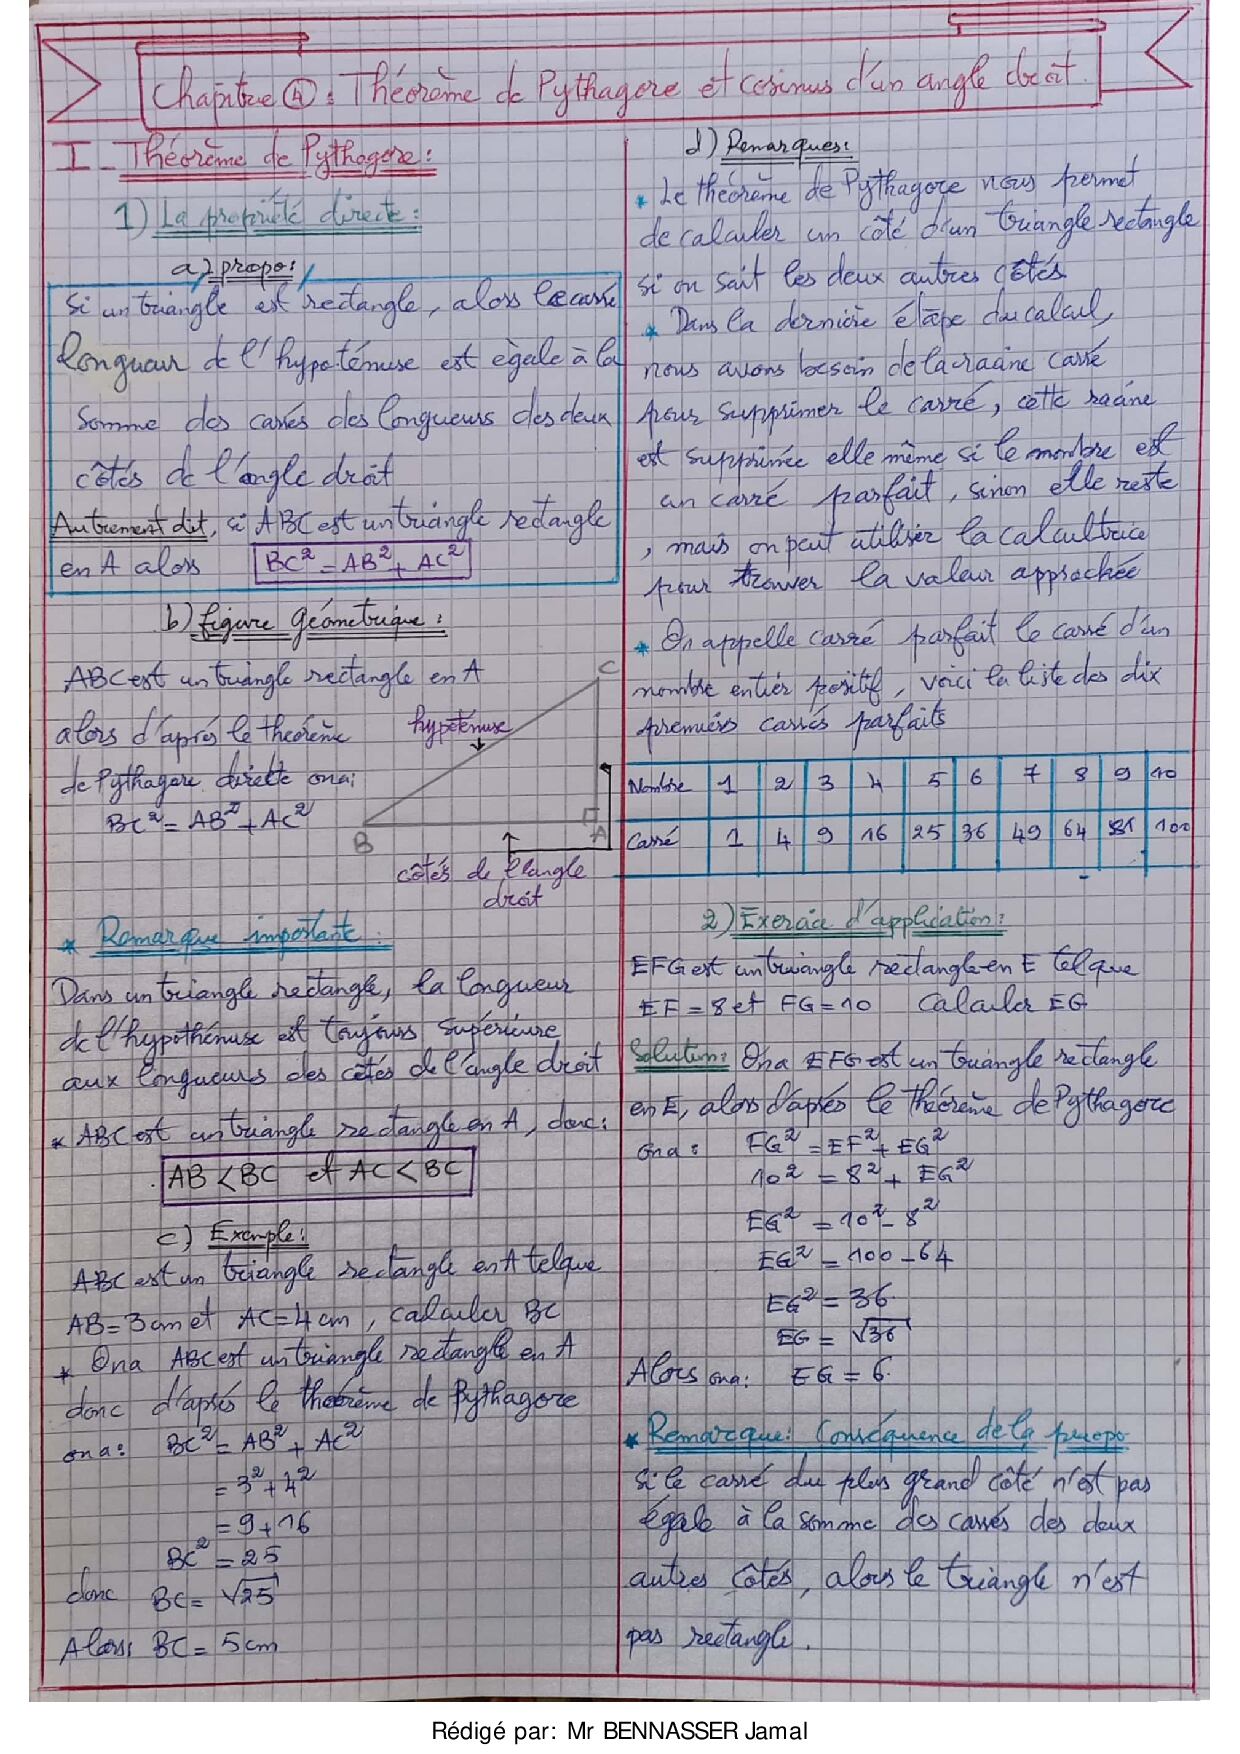 Chapitre 4 : Théorème de Pythagore et cosinus d'un angle droit.
I - Théorème de Pythagore :
1) La propriété directe :
a) propo :
Si un triangle est rectangle, alors le carré
longueur de l'hypoténuse est égale à la
somme des carrés des longueurs des deux
côtés de l'angle droit
Autrement dit, si ABC est un triangle rectangle
en A alors BC² = AB² + AC²
b) figure géométrique :
ABC est un triangle rectangle en A
alors d'après le théorème
de Pythagore directe on a :
BC² = AB² + AC²
C
hypoténuse
B
A
côtés de l'angle
droit
* Remarque importante :
Dans un triangle rectangle, la longueur
de l'hypothénuse est toujours supérieure
aux longueurs des côtés de l'angle droit
* ABC est un triangle rectangle en A, donc :
AB < BC et AC < BC
c) Exemple :
ABC est un triangle rectangle en A tel que
AB = 3cm et AC = 4cm, calculer BC
* On a ABC est un triangle rectangle en A
donc d'après le théorème de Pythagore
on a : BC² = AB² + AC²
= 3² + 4²
= 9 + 16
BC² = 25
donc BC = √25
Alors : BC = 5cm
d) Remarques :
* Le théorème de Pythagore nous permet
de calculer un côté d'un triangle rectangle
si on sait les deux autres côtés
* Dans la dernière étape du calcul,
nous avons besoin de la racine carré
pour supprimer le carré, cette racine
est supprimée elle même si le nombre est
un carré parfait, sinon elle reste
, mais on peut utiliser la calcultrice
pour trouver la valeur approchée
* On appelle carré parfait le carré d'un
nombre entier positif, voici la liste des dix
premiers carrés parfaits
Nombre 1 2 3 4 5 6 7 8 9 10
Carré 1 4 9 16 25 36 49 64 81 100
2) Exercice d'application :
EFG est un triangle rectangle en E tel que
EF = 8 et FG = 10 Calculer EG
Solution : On a EFG est un triangle rectangle
en E, alors d'après le théorème de Pythagore
on a : FG² = EF² + EG²
10² = 8² + EG²
EG² = 10² - 8²
EG² = 100 - 64
EG² = 36
EG = √36
Alors on a : EG = 6.
* Remarque : Conséquence de la propo
si le carré du plus grand côté n'est pas
égale à la somme des carrés des deux
autres côtés, alors le triangle n'est
pas rectangle.
Rédigé par: Mr BENNASSER Jamal